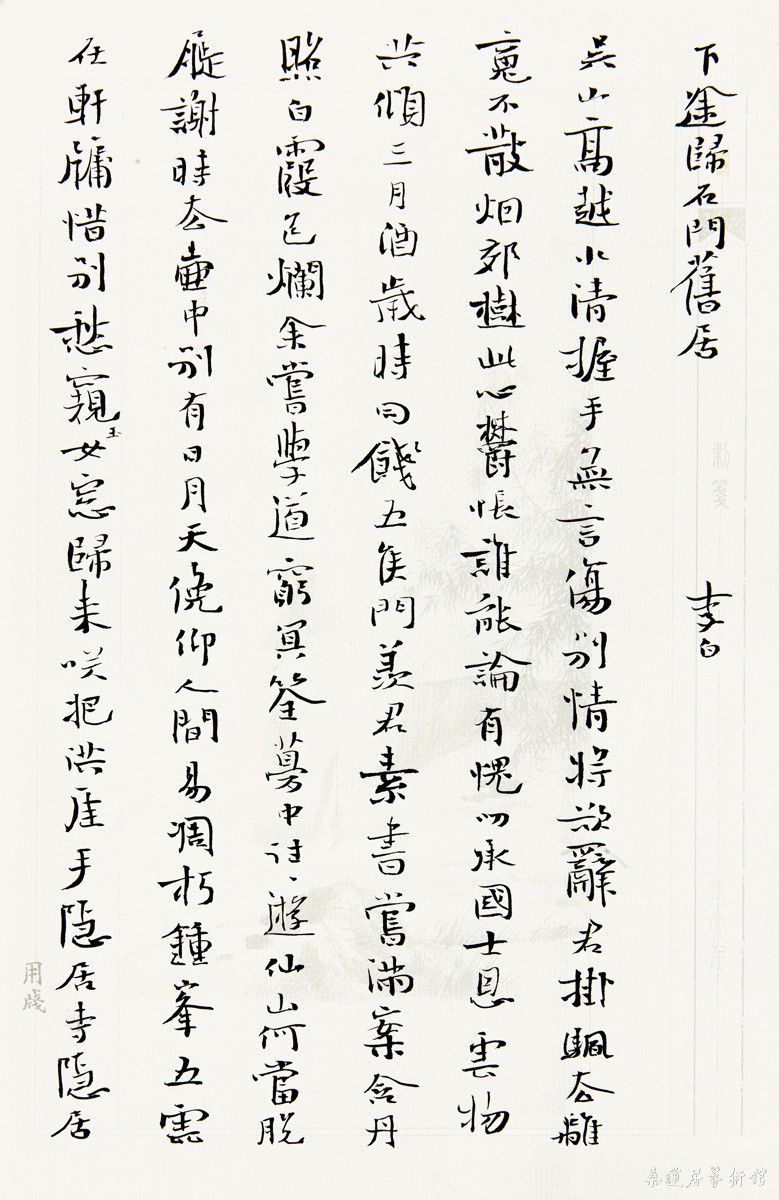 下途歸石門舊居　李白
吳山高越水清握手無言傷別情將欲辭君掛颿去離
魂不散烟郊樹此心鬱悵誰能論有愧叨承國士恩雲物
共傾三月酒歲時同餞五侯門羨君素書嘗滿案含丹
照白霞色爛余嘗學道窮冥筌夢中往往遊仙山何當脫
屣謝時去壺中別有日月天俛仰人間易凋朽鍾峯五雲
在軒牖惜別愁窺玉女窓歸来咲把洪崖手隱居寺隱居
用牋
桑蓮居藝術館